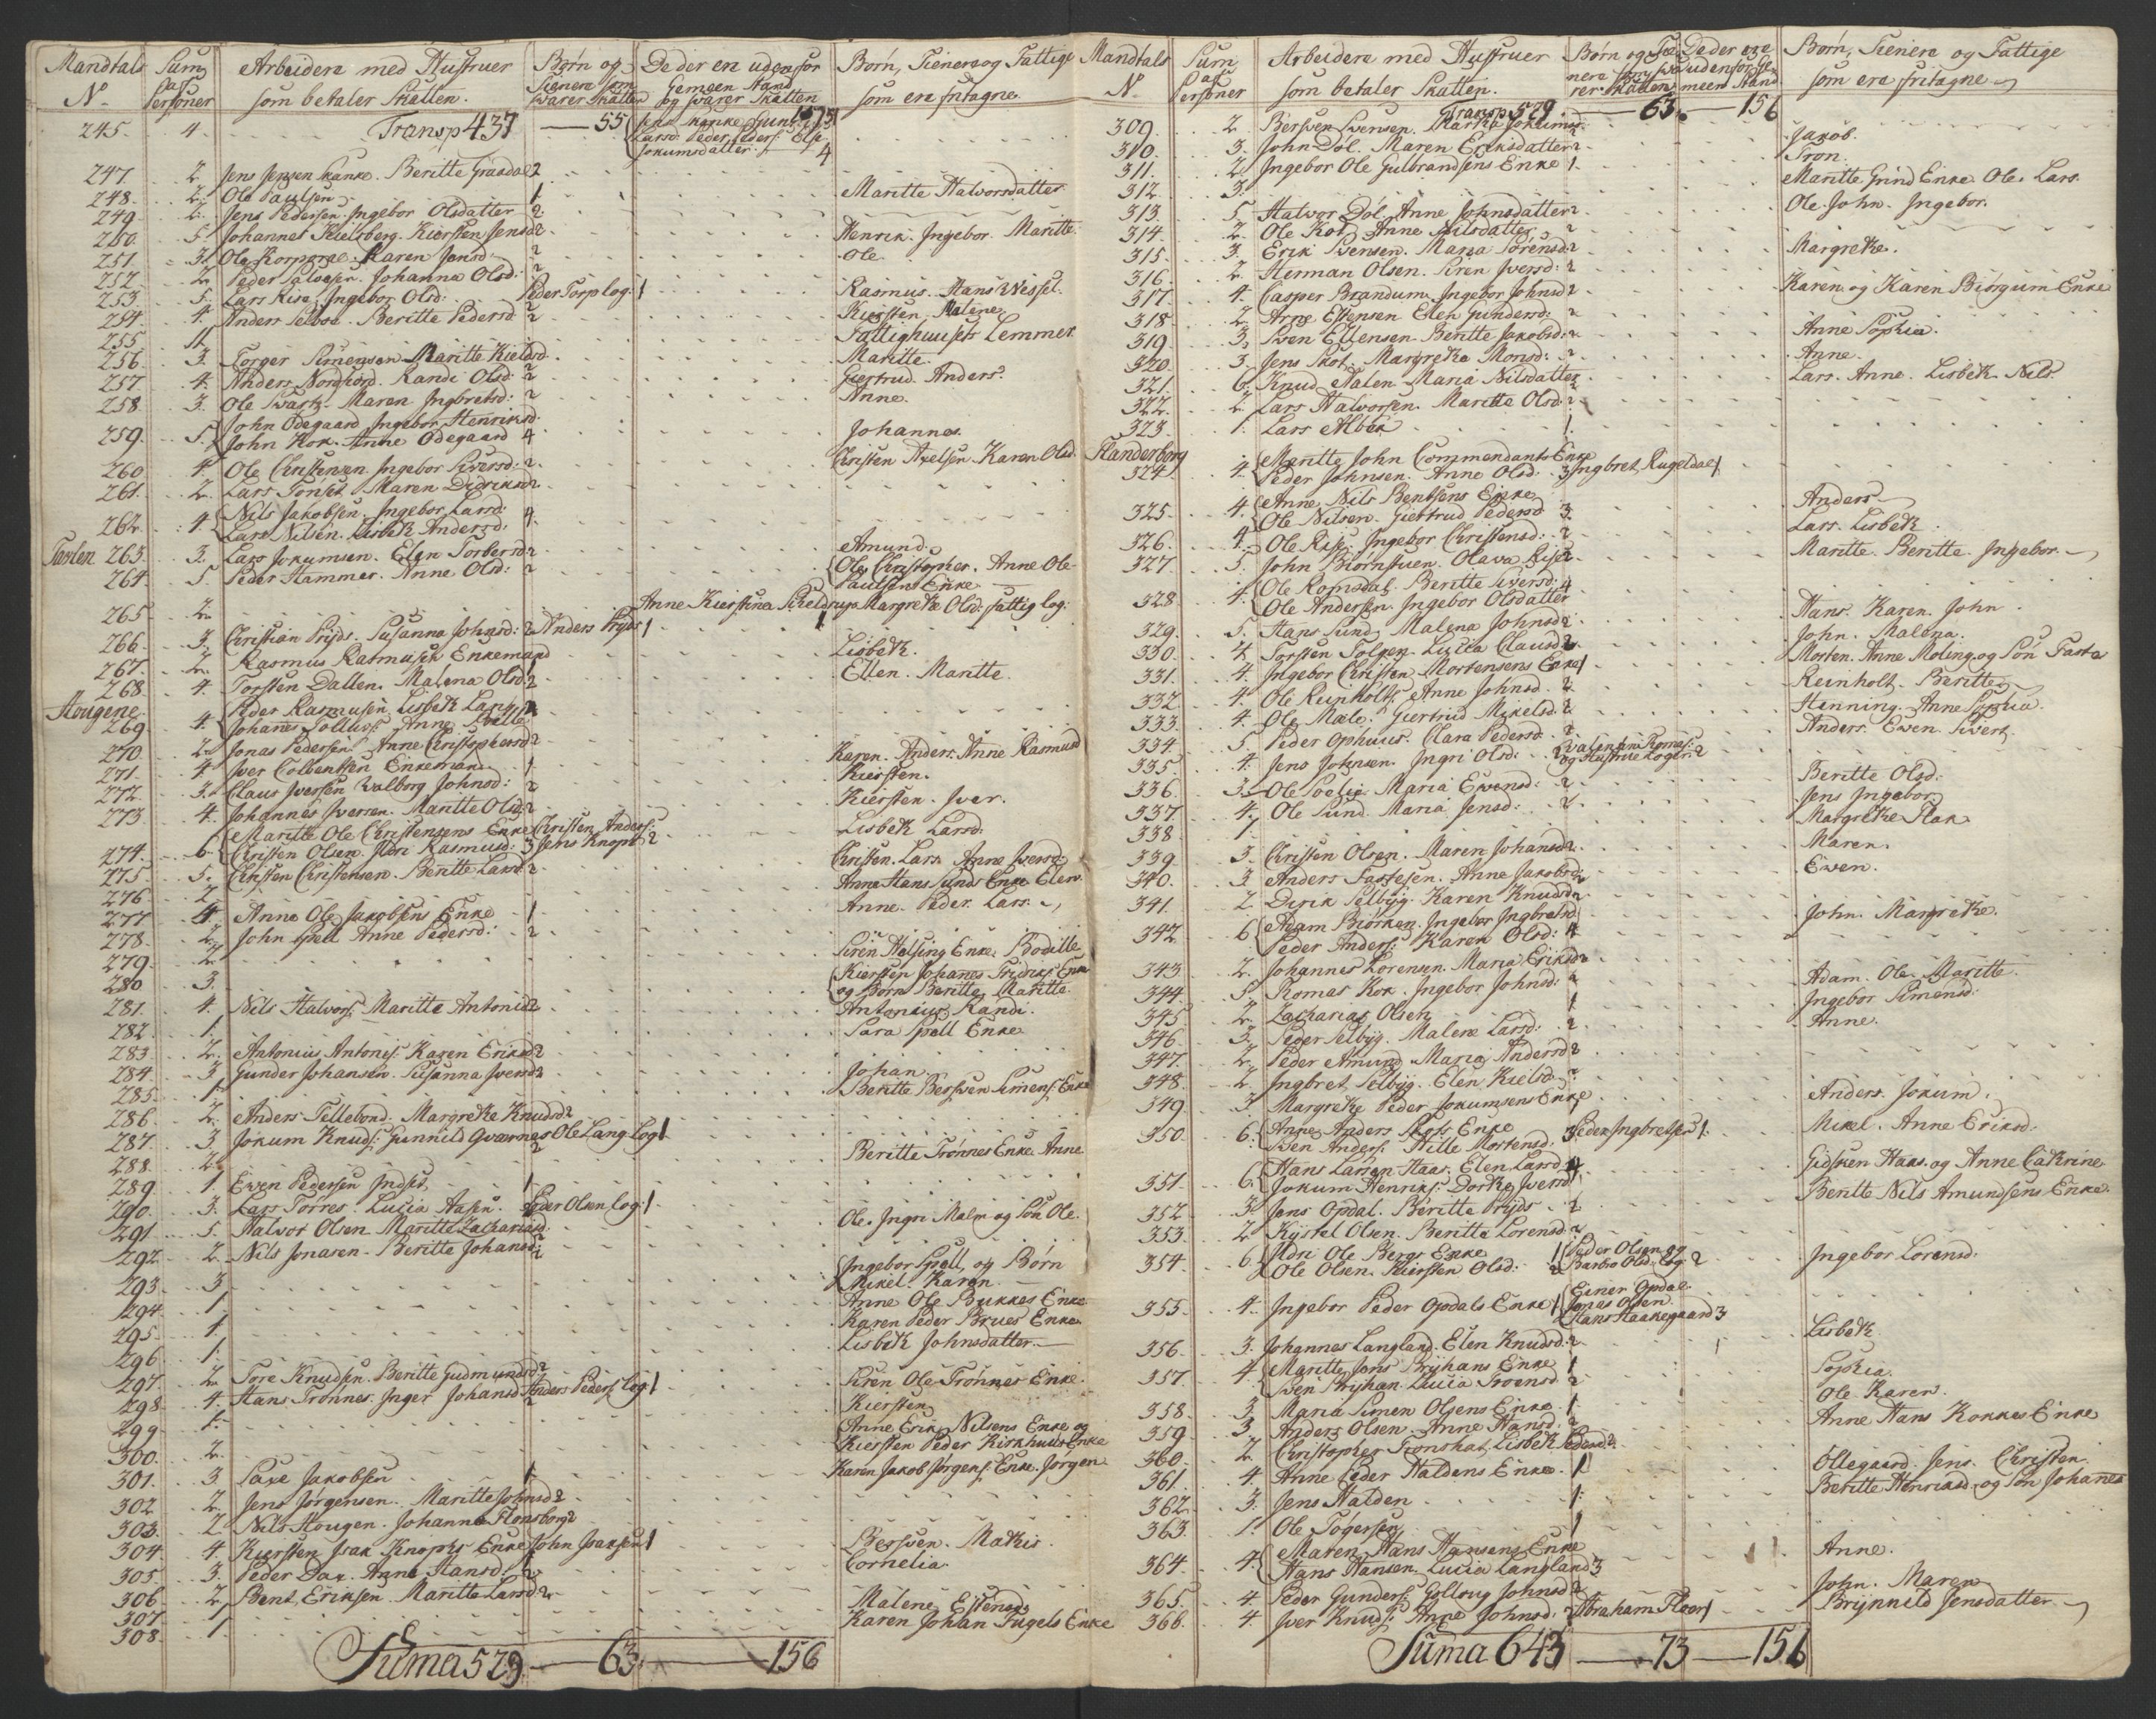 Mandtals N. Sum af Personer Arbeidere med Hustruer som betaler Skatten. Børn og Tienere som svarer Skatten De der er udenfor Gemeen Stand og svarer Skatten Børn, Tienere og Fattige som ere fritagne
245. 4. Transp 437 — 55
Jokumsdatter 4
247. 2. Jens Jensen Kanke. Beritte 2
248. 2. Ole Paulsen 1. Maritte Halvorsdatter
249. 2. Jens Pedersen. Ingebor Olsdatter 2
250. 5. Johannes Kielsberg. Kiersten Jensd 2. Henrik. Ingebor. Maritte.
251. 3. Ole Korporal. Karen Jensd. 2 Ole.
252. 2. Peder Johanna Olsd: 2
253. 5. Lars Rise. Ingebor Olsd: Peder Torp log: 1 Rasmus. Hans Wessel.
254. 4. Anders Selboe. Beritte Pedersd 2 Kiersten. Malene
255. 11. Fattighuuset Lemmer
256. 3. Torger Simensen Maritte Kieldsd Maritte.
257. 4. Anders Nordfiord. Randi Olsd: 2 Giertrud. Anders.
258. 3. Ole Svartz. Maren Ingbretsd: 2 Anne.
John Ødegaard Ingebor Henriksd.
259. 5. John Kok. Anne Ødegaard 4 Johannes.
260 4 Ole Christensen. Ingebor Siversd: 2. Christen Axelsen. Karen Olsd.
261. 2. Lars Tonset Maren Didriksd 2
Nils Jakobsen. Ingebor Larsd:
262. 4. Lars Nilsen. Lisbeth Andersd: 4
263. 3. Lars Jokumsen. Elen Torbersd 2 Amund.
264. 5. Peder Hammer. Anne Olsd: 2 Ole Christopher. Anne Ole Paulsens Enke
265. 2. Anne Kierstina Margrethe Olsd: fattig log:
266. 3. Christian Prijds. Susanna Johnsd: 2 Anders Prijds 1 Lisbeth.
267. 2. Rasmus Rasmusen Enkemand 1 Ellen. Maritte.
268. 4. Torsten Dallen. Malena Olsd. 2
Hougene Peder Rasmusen Lisbeth Lang
269 4. Johanes Anne
270. 2. Jonas Pedersen. Anne Christophersd 2
271. 4 Iver Colbentsen Enkemand 1 Karen. Anders. Anne Rasmusd
272. 3. Claus Iversen Walborg Johnsd: 2 Kiersten.
273. 4. Johannes Iversen. Maritte Olsd. 2 Kiersten. Iver.
Maritte Ole Christensens Enke Christen Anders:
274. 6. Christen Olsen. Rasmusd: 3 Jens Knoph 2 Lisbeth Larsd.
275 5. Christen Christensen. Beritte Larsd. 2 Christen. Lars. Anne Iversd:
276. 2 Anna Hans Sunds Enke Elen.
277 4. Anne Ole Jakobsens Enke 1 Anne. Peder. Lars.
278. 2. John Spell Anne Pedersd: 2
279. 2. Siren Helsing Enke. Bodille
280 3. Kiersten Johanes Fridriks Enke og Børn Beritte, Maritte.
281. 4. Nils Halvors: Maritta Antonisd 2 Antonius Randi.
282. 1. Sara Spell Enke
283. 2. Antonius Antonis: Karen Eriksd 2
284. 3 Gunder Johansen. Susanna Iversd 2 Johan
285. 1. Beritte Berswen Simens: Enke
286. 2. Anders Tellebond. Margrethe Knudsd 2
287. 3 Jokum Knuds: Gunnild Ole Lang Log 1
288. 2 Beritte Trønnes Enke. Anne
289. 1. Ewen Pedersen Indset. 1
290. 3. Lars Torres. Lucia Aasen. Peder Olsen log: 1
291 5. Halvor Olsen. Maritte Zachariasd Ole. Ingri Malm og Søn Ole.
292. 2. Nils Jonasen. Beritte Johansd 2
293. 3 Ingebor Spell, og Børn Mikel. Karen.
294. 1 Anne Ole Bukkes Enke
295. 1. Karen Peder Brues Enke.
296 1. Lisbeth Johnsdatter
297. 2. Tore Knudsen. Beritte Gudmundsd 2
298. 4. Hans Trønnes. Inger Johansd. Anders Peders: log 1 Siren Ole Trønnes Enke.
299 1. Kiersten
300. 2. Anne Erik Nilsens Enke og Kiersten Peder Kirkhuus Enke
301. 3 Jakobsen 1 Karen Jakob Jørgens: Enke. Jørgen
302. 2. Jens Jørgensen. Maritte Johnsd 2
303. 2. Nils Hougen. Johanna Flensborg 2
304. 4. Kiersten Isak Knophs Enke John Isaksen 1 Berswen. Mathis.
305. 3. Peder Dax. Anne Hansd. 2 Cornelia.
306. 2. Bent Eriksen. Maritte Larsd. 2
307. 1 Malene
308. 1 Karen Johan Fugels Enke
Suma 529 — 63. — 156
Mandtals N. Sum af Personer Arbeidere med Hustruer som betaler Skatten. Børn, Tienere og Fattige som ere fritagne
Transp 529. — 63. — 156
309. 2. Berswen Iversen.
310. 3. John Døl. Maren Eriksdatter 2. Jakob.
311. 2 Ingebor Ole Gulbrandsens Enke 1. Tron.
312. 3. Maritte Grind Enke Ole. Lars.
313. 5. Halvor Døl. Anne Johnsdatter 2. Ole. John. Ingebor.
314. 2. Ole Kot. Anne Nilsdatter 2
315. 3. Erik Svensen. Maria Sørensd: 2 Margrethe.
316. 2. Herman Olsen. Siren Iversd: 2
317. 4. Casper Brandum. Ingebor Johnsd 2 Karen og Karen Biørgum Enke
318. 2. Arne Estensen Elen Gundersd: 2
319. 3. Sven Ellensen. Beritte Jakobsd: 2 Anne Sophia.
320. 3. Jens Skot. Margrethe Monsd: 2 Anne.
321. 6. Knud Aalen Maria Nilsdatter 2 Lars. Anne. Lisbeth. Nils.
322. 2. Lars Halvorsen. Maritte Olsd: 2
323. 1. Lars Albek 1.
Flanderborg Maritte John Commendants Enke
324. 4. Peder Johnsen. Anne Olsd. 3 Ingbret Rugeldal 1
Anne Nils Bentsens Enke
325. 4. Ole Nilsen. Giertrud Pedersd 3. Anders
326. 4. Ole Rise. Ingebor Christensd: 2 Lars. Lisbeth.
327 5. John Biørnstuen. Olava Rise 2 Maritte. Beritte. Ingebor.
Ole Romsdal. Beritte Siversd:
328. 4. Ole Andersen. Ingebor Olsdatter 4
329. 5. Hans Sund. Malena Johnsd 2 Hans. Karen. John.
330. 4. Torsten Tolgen. Lucia Clausd 2 John. Malena.
331. 4. Ingebor Christen Mortensens Enke 1 Morten. Anne Moling og Søn Faste
332. 4. Ole Reinholts: Anne Johnsd. 2 Reinholt. Beritte
333. 4. Ole Mæle. Giertrud Mikelsd. 2 Henning. Anne Sophia.
334. 5 Peder Ophuus. Clara Pedersd. 2 Anders. Ewen. Sivert.
335. 4. Jens Johnsen. Ingri Olsd: 2 og Hustrue Loger: 2
336. 3. Ole Maria Ewensd: 2 Beritte Olsd:
337. 4. Ole Sund. Maria Jensd: 2 Jens Ingebor
338. 1 Margrethe Flak
339. 3. Christen Olsen. Maren Johansd 2. Maren.
340. 3. Anders Fastesen. Anne Jakobsd 2 Ewen.
341. 2. Dirik Selbyg. Karen Knudsd 2
Adam Biørken. Ingebor Ingbretsd
342. 6 Peder Anders: Karen Olsd: 4 John. Margrethe.
343. 2. Johannes Lorensen. Maria Eriksd 2
344. 5. Thomas Kok. Ingebor Johnsd: 2 Adam. Ole. Maritte.
345 2. Zacharias Olsen 1 Ingebor Simensd:
346. 3. Peder Selbyg. Malene Larsd: 2 Anne.
347. 2. Peder Amund. Maria Andersd 2
348. 2. Ingbret Selbyg. Elen Kielsd. 2
349. 3. Margrethe Peder Jokumsens Enke Anders. Jokum.
350. 6. Anne Anders Enke Peder Ingbretsen 1. Mikel. Anne Eriksd.
Sven Anders: Hille Mortensd. 3
Hans Larsen Haas. Elen Larsd. 4
351. 6. Jokum Henriks: Dorthe Iversd Gidsken Haas. og Anne Cathrine
352 3. Jens Opdal. Beritte Prijds. 2 Beritte Nils Amundsens Enke.
353. 2 Kystel Olsen. Beritta Lorensd: 2
354. 6. Ole Bergs Enke 1 Peder Olsen og Ingebor Lorensd:
Ole Olsen. Kiersten Olsd: 2 Barbro Olsd: Log: 2
355. 4. Ingebor Peder Opdals Enke 1 Einer Opdal. Jonas Olsen. Hans Haakegaard 3
356. 3. Johannes Langland. Elen Knudsd: 2 Lisbeth
357. 4. Maritte Jens Brijhans Enke 1 Sophia.
Sven Brijhan. Lucia 2
358. 3. Maria Simen Olsens Enke. 1 Ole. Karen.
359. 3. Anders Olsen. Anne Hansd: 2 Anne Hans Kokkes Enke
360. 2. Christopher Lisbeth Pedersd 2
361. 4. Anne Peder Haldens Enke. 1 Ollegaard. Jens. Christen.
362. 3. Jens Halden 1. Beritte Henriksd. og Søn Johanes
363. 1. Ole Togersen 1
Maren Hans Hansens Enke
364. 4. Hans Hansen. Lucia Langland 3 Anne.
365. 4. Peder Gunders: Johnsd 2 John. Maren
366. 4. Iver Knuds: Anne Johnsd: 2 Abraham Floer 1 Brynnild Jensdatter
Suma 643 — 73 — 156